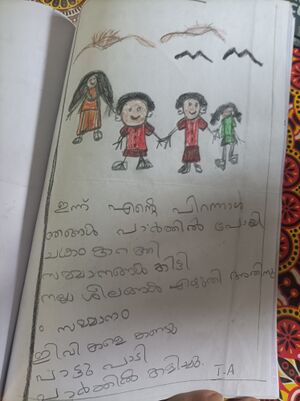 ഇന്ന് എന്റെ പിറന്നാൾ
ഞങ്ങൾ പാർക്കിൽ പോയി
സമ്മാനങ്ങൾ കിട്ടി
നല്ല ശീലങ്ങൾ എഴുതി അതിനു
: സമ്മാനം
പാട്ടു പാടി
പാർക്കിൽ കളിച്ചു. I-A